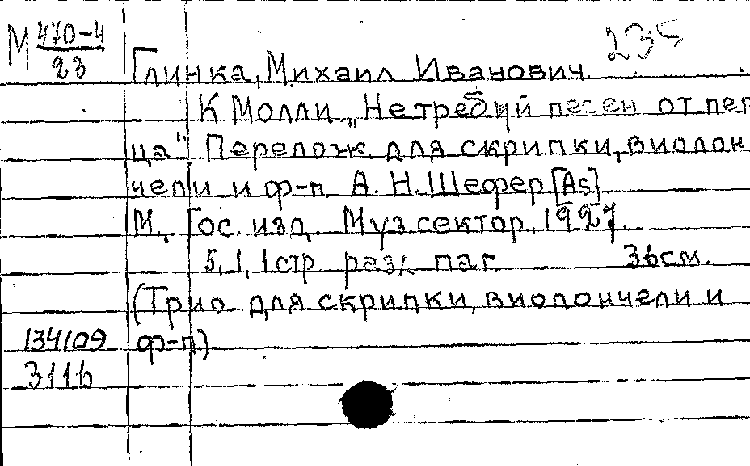 М 470-4
23
235
Глинка, Михаил Иванович.
К Молли „Не требуй песен от пев
ца" Перелож. для скрипки, виолон
чели и ф-п. А. Н. Шефер [As]
М., Гос. изд. Муз сектор, 1927.
5, 1, 1 стр. разк. паг. 36см.
(Трио для скрипки, виолончели и
134109 ф-п.)
311b